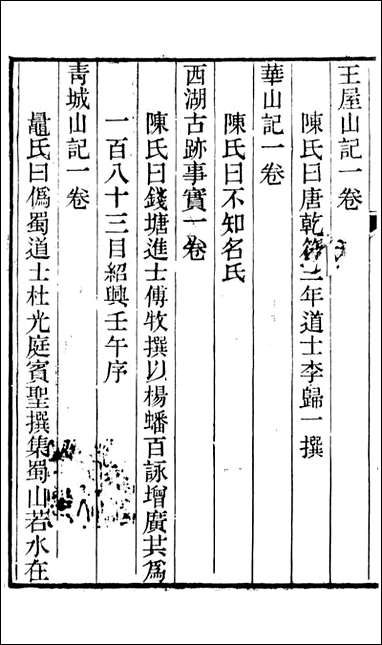 王屋山記一卷
陳氏曰唐乾符三年道士李歸一撰
華山記一卷
陳氏曰不知名氏
西湖古跡事實一卷
陳氏曰錢塘進士傅牧撰以楊蟠百詠增廣其為
一百八十三目紹興壬午序
青城山記一卷
鼂氏曰偽蜀道士杜光庭賓聖撰集蜀山若水在